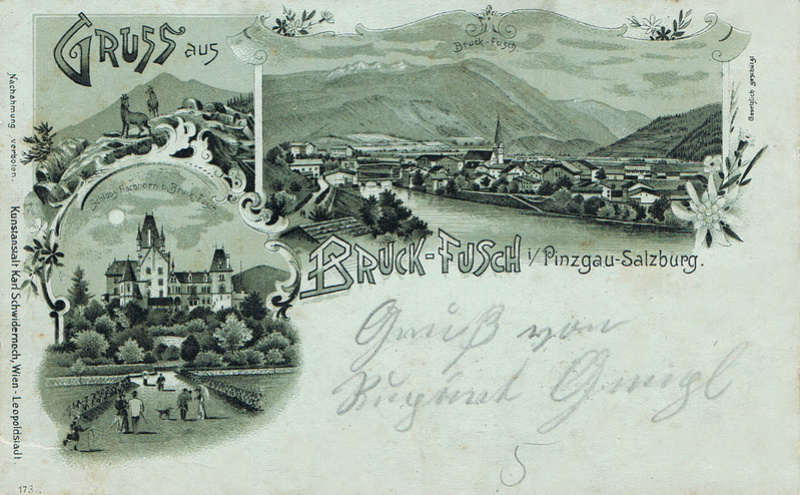 GRUSS aus
Bruck-Fusch.
Schloss Fischhorn b. Bruck-Fusch.
BRUCK-FUSCH i/ Pinzgau-Salzburg.
Gruß von
5
Nachahmung verboten.
Kunstanstalt Karl Schwidernoch, Wien-Leopoldstadt.
Gesetzlich geschützt
173.